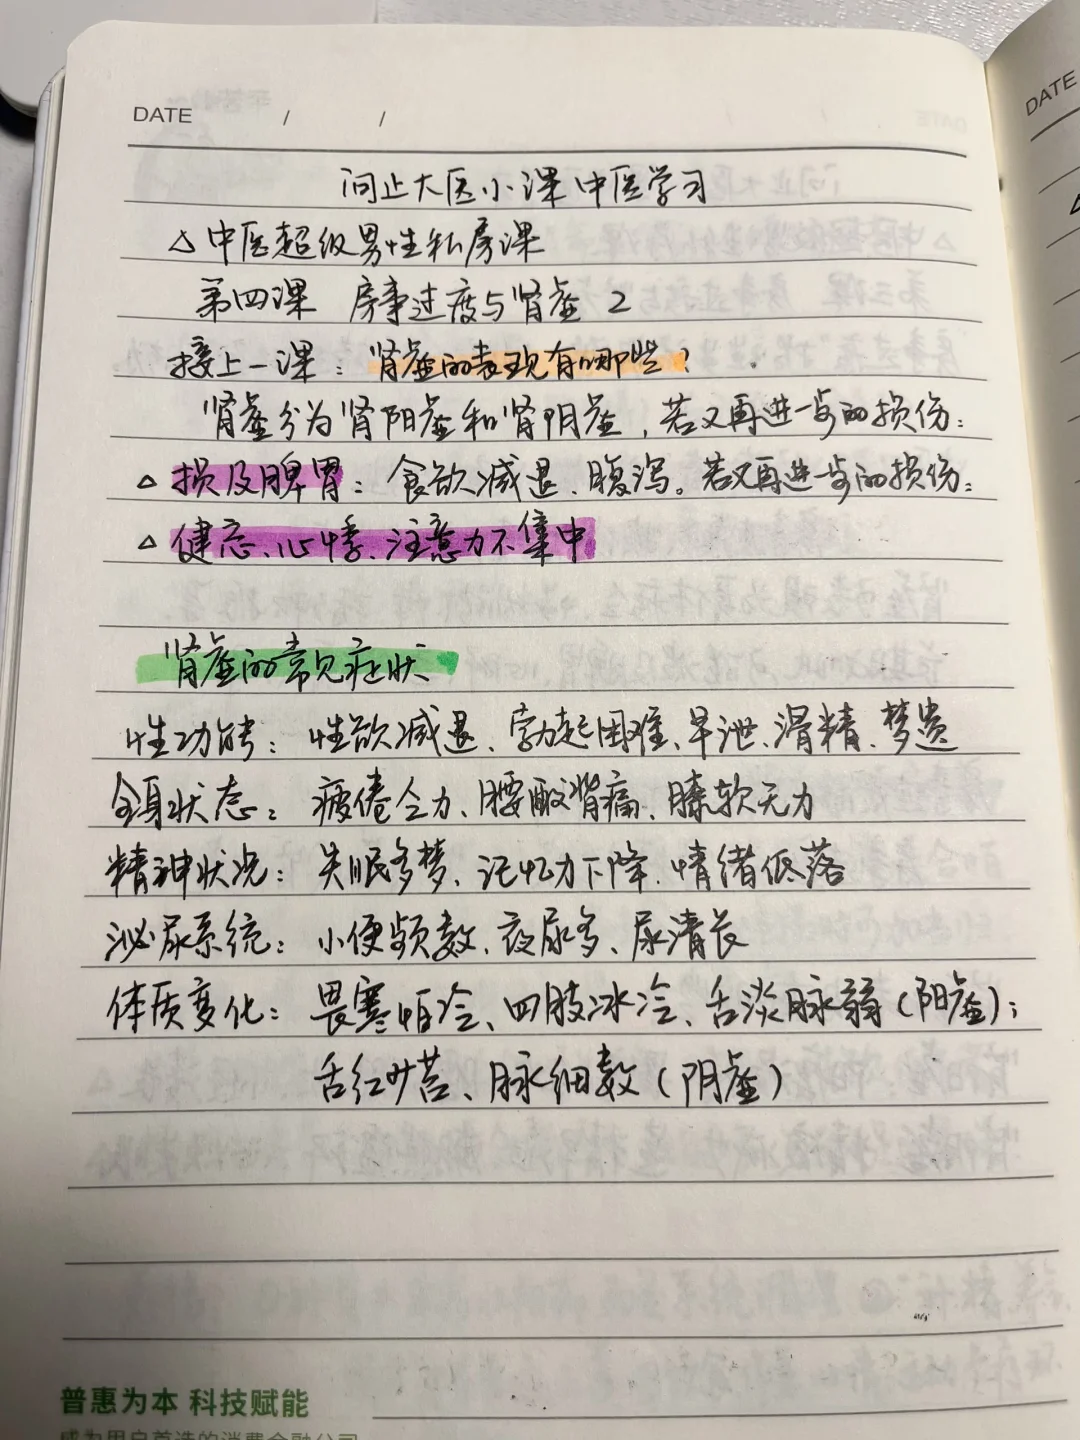 DATE / /
DATE
问止大医小课 中医学习
△ 中医超级男性私房课
第四课 房事过度与肾虚 2
接上一课：肾虚的表现有哪些？
肾虚分为肾阳虚和肾阴虚，若又再进一步的损伤：
△ 损及脾胃：食欲减退、腹泻。若又再进一步的损伤：
△ 健忘、心悸、注意力不集中
肾虚的常见症状
性功能：性欲减退、勃起困难、早泄、滑精、梦遗
全身状态：疲倦乏力、腰酸背痛、膝软无力
精神状况：失眠多梦、记忆力下降、情绪低落
泌尿系统：小便频数、夜尿多、尿清长
体质变化：畏寒怕冷、四肢冰冷、舌淡脉弱（阳虚）；
舌红少苔、脉细数（阴虚）
普惠为本 科技赋能
成为用户首选的消费金融公司